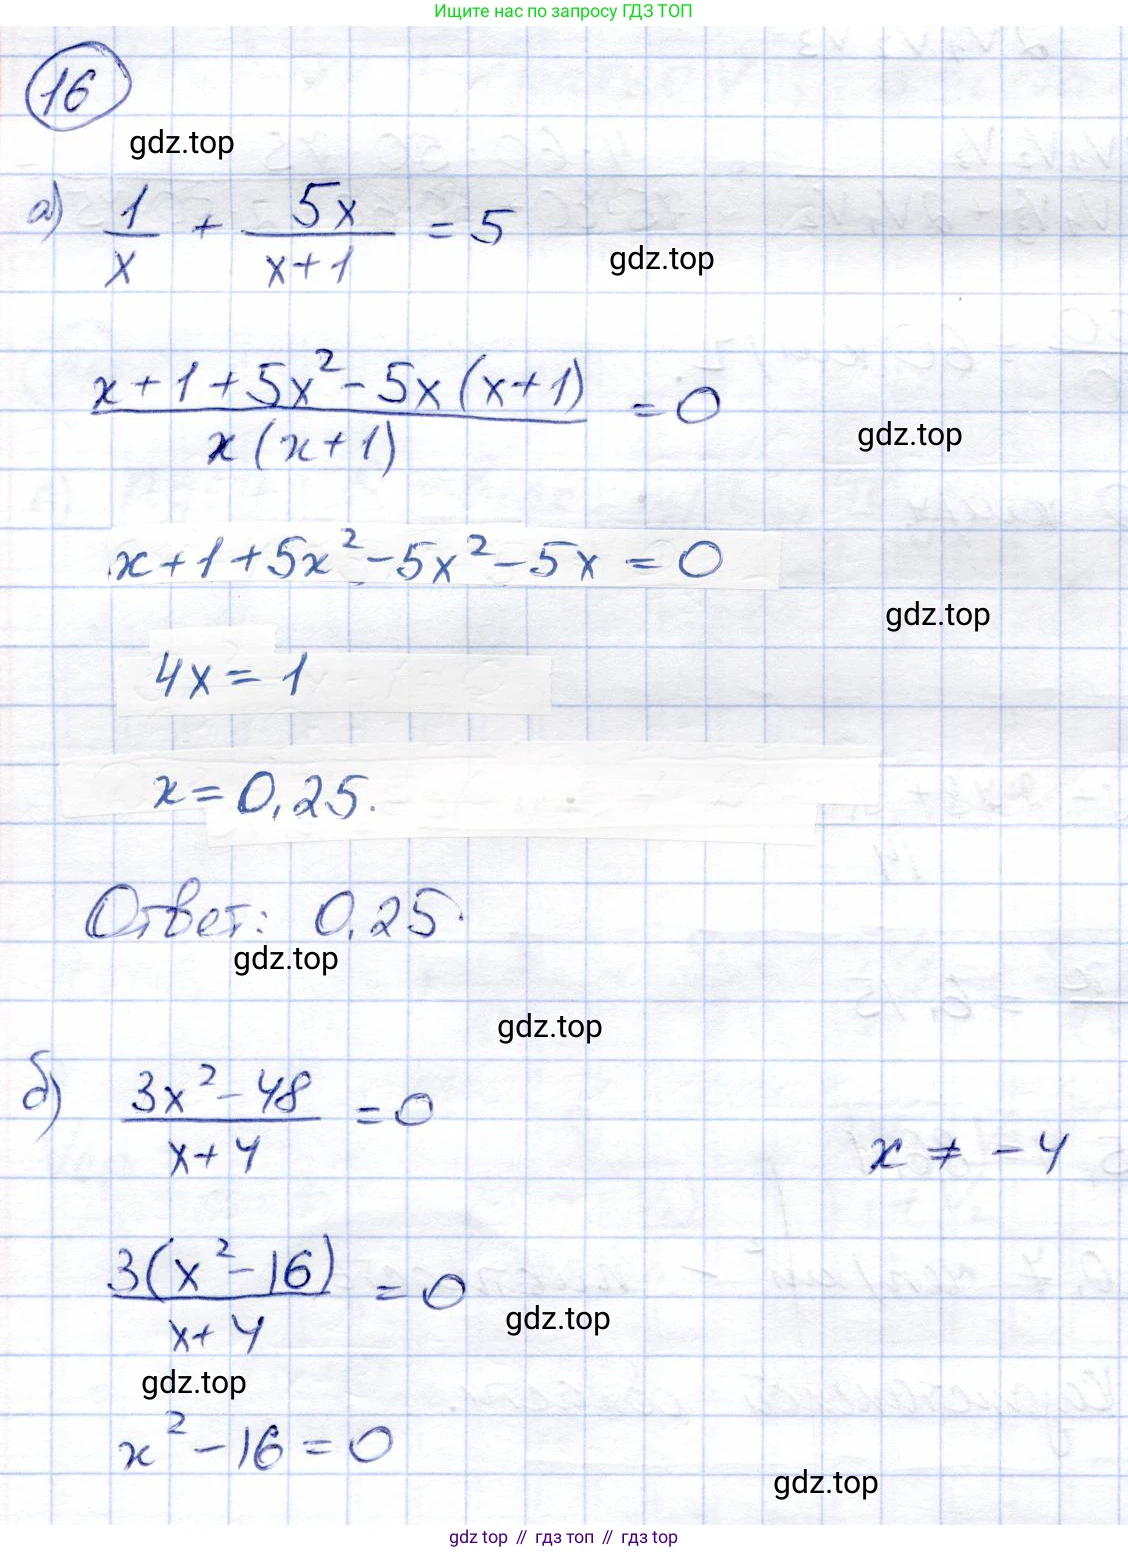 Ищите нас по запросу ГДЗ ТОП
16
gdz.top
а) 1/x + 5x/(x+1) = 5
gdz.top
(x+1+5x²-5x(x+1))/(x(x+1)) = 0
gdz.top
x+1+5x²-5x²-5x = 0
gdz.top
4x = 1
x = 0,25.
Ответ: 0,25.
gdz.top
gdz.top
б) (3x²-48)/(x+4) = 0
x ≠ -4
3(x²-16)/(x+4) = 0
gdz.top
gdz.top
x²-16=0
gdz.top
gdz top // гдз топ // гдз top